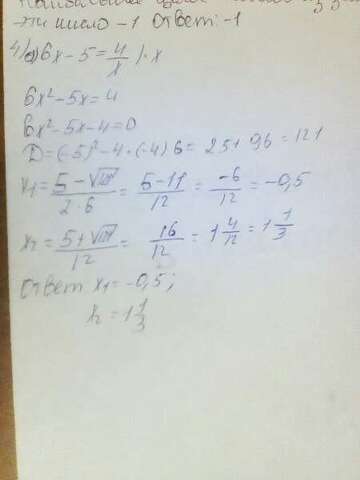 эти число -1 Ответ: -1
4) а) 6x - 5 = 4/x | · x
6x² - 5x = 4
6x² - 5x - 4 = 0
D = (-5)² - 4 · (-4) 6 = 25 + 96 = 121
x₁ = (5 - √121)/(2 · 6) = (5 - 11)/12 = -6/12 = -0,5
x₂ = (5 + √121)/12 = 16/12 = 1 4/12 = 1 1/3
Ответ x₁ = -0,5;
x₂ = 1 1/3